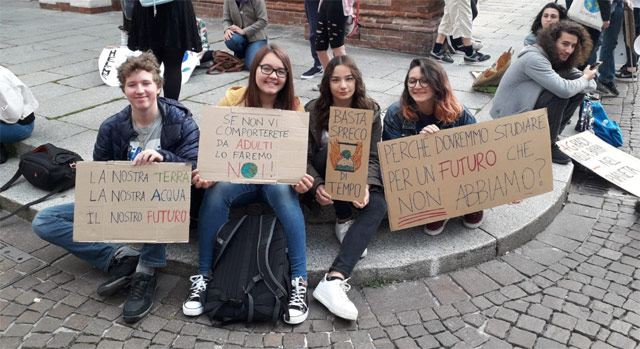 LA NOSTRA TERRA
LA NOSTRA ACQUA
IL NOSTRO FUTURO
SE NON VI
COMPORTERETE
DA ADULTI
LO FAREMO
NOI!
BASTA
SPRECO
DI
TEMPO
PERCHÉ DOVREMMO STUDIARE
PER UN FUTURO CHE
NON ABBIAMO?